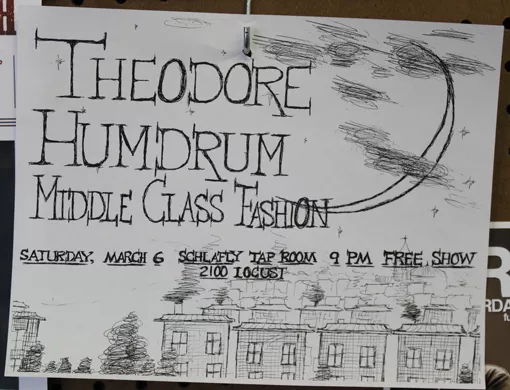 THEODORE
HUMDRUM
MIDDLE CLASS FASHION
SATURDAY, MARCH 6 SCHLAFLY TAP ROOM 9 PM FREE SHOW
2100 LOCUST
R
RDA